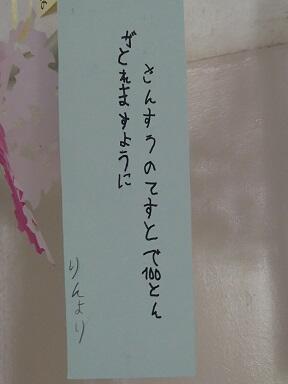 さんすうのてすとで100とん
がとれますように
りんより